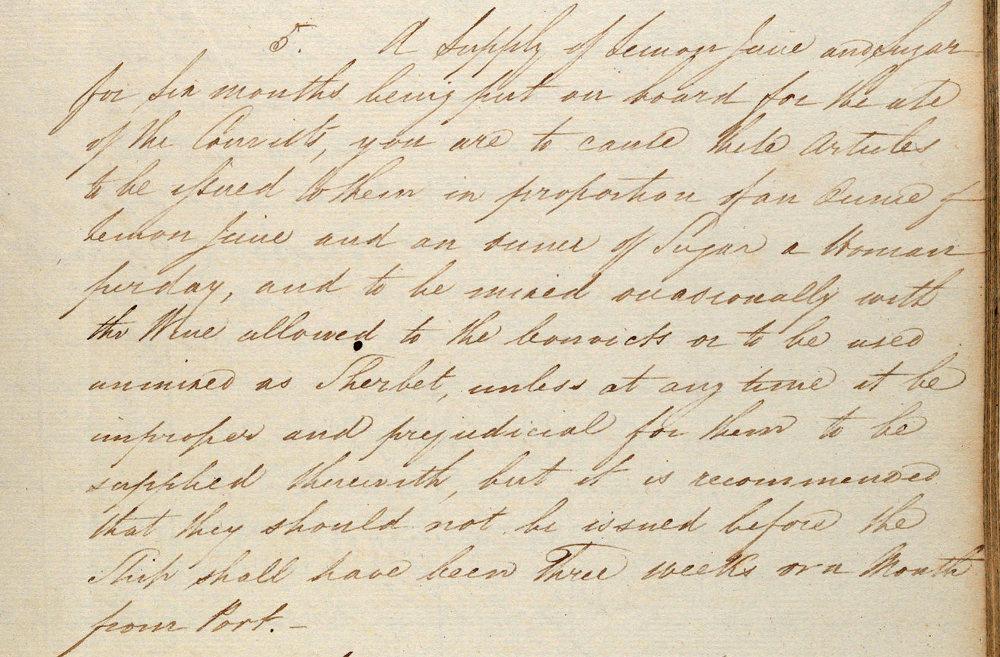 5. A Supply of Lemon Juice and Sugar
for Six months being put on board for the use
of the Convicts, you are to cause these Articles
to be issued to them in proportion of an Ounce of
Lemon Juice and an ounce of Sugar a Woman
per day, and to be mixed occasionally with
the Wine allowed to the Convicts or to be used
unmixed as Sherbet, unless at any time it be
improper and prejudicial for them to be
supplied therewith, but it is recommended
that they should not be issued before the
Ship shall have been Three weeks or a Month
from Port. —